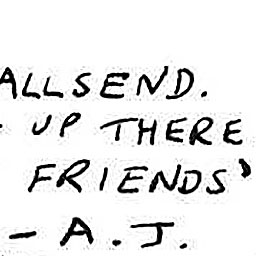 ALLSEND.
UP THERE
FRIENDS'
- A.J.